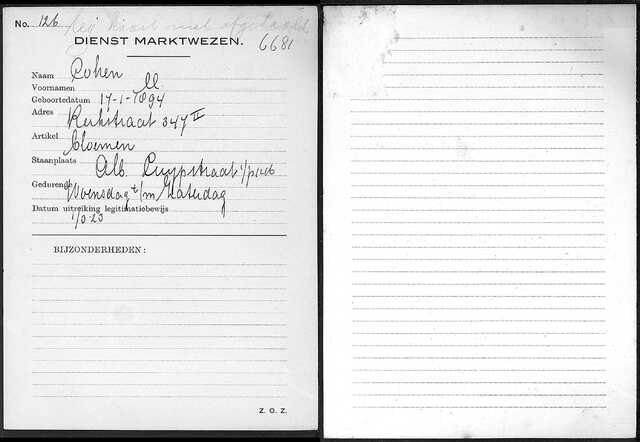 No. 126
DIENST MARKTWEZEN.
6681
Naam Cohen
Voornamen M
Geboortedatum 17-1-1894
Adres Kerkstraat 347 II
Artikel bloemen
Staanplaats Alb. Cuypstraat
Gedurende Woensdag t/m Zaterdag
Datum uitreiking legitimatiebewijs
BIJZONDERHEDEN:
Z. O. Z.